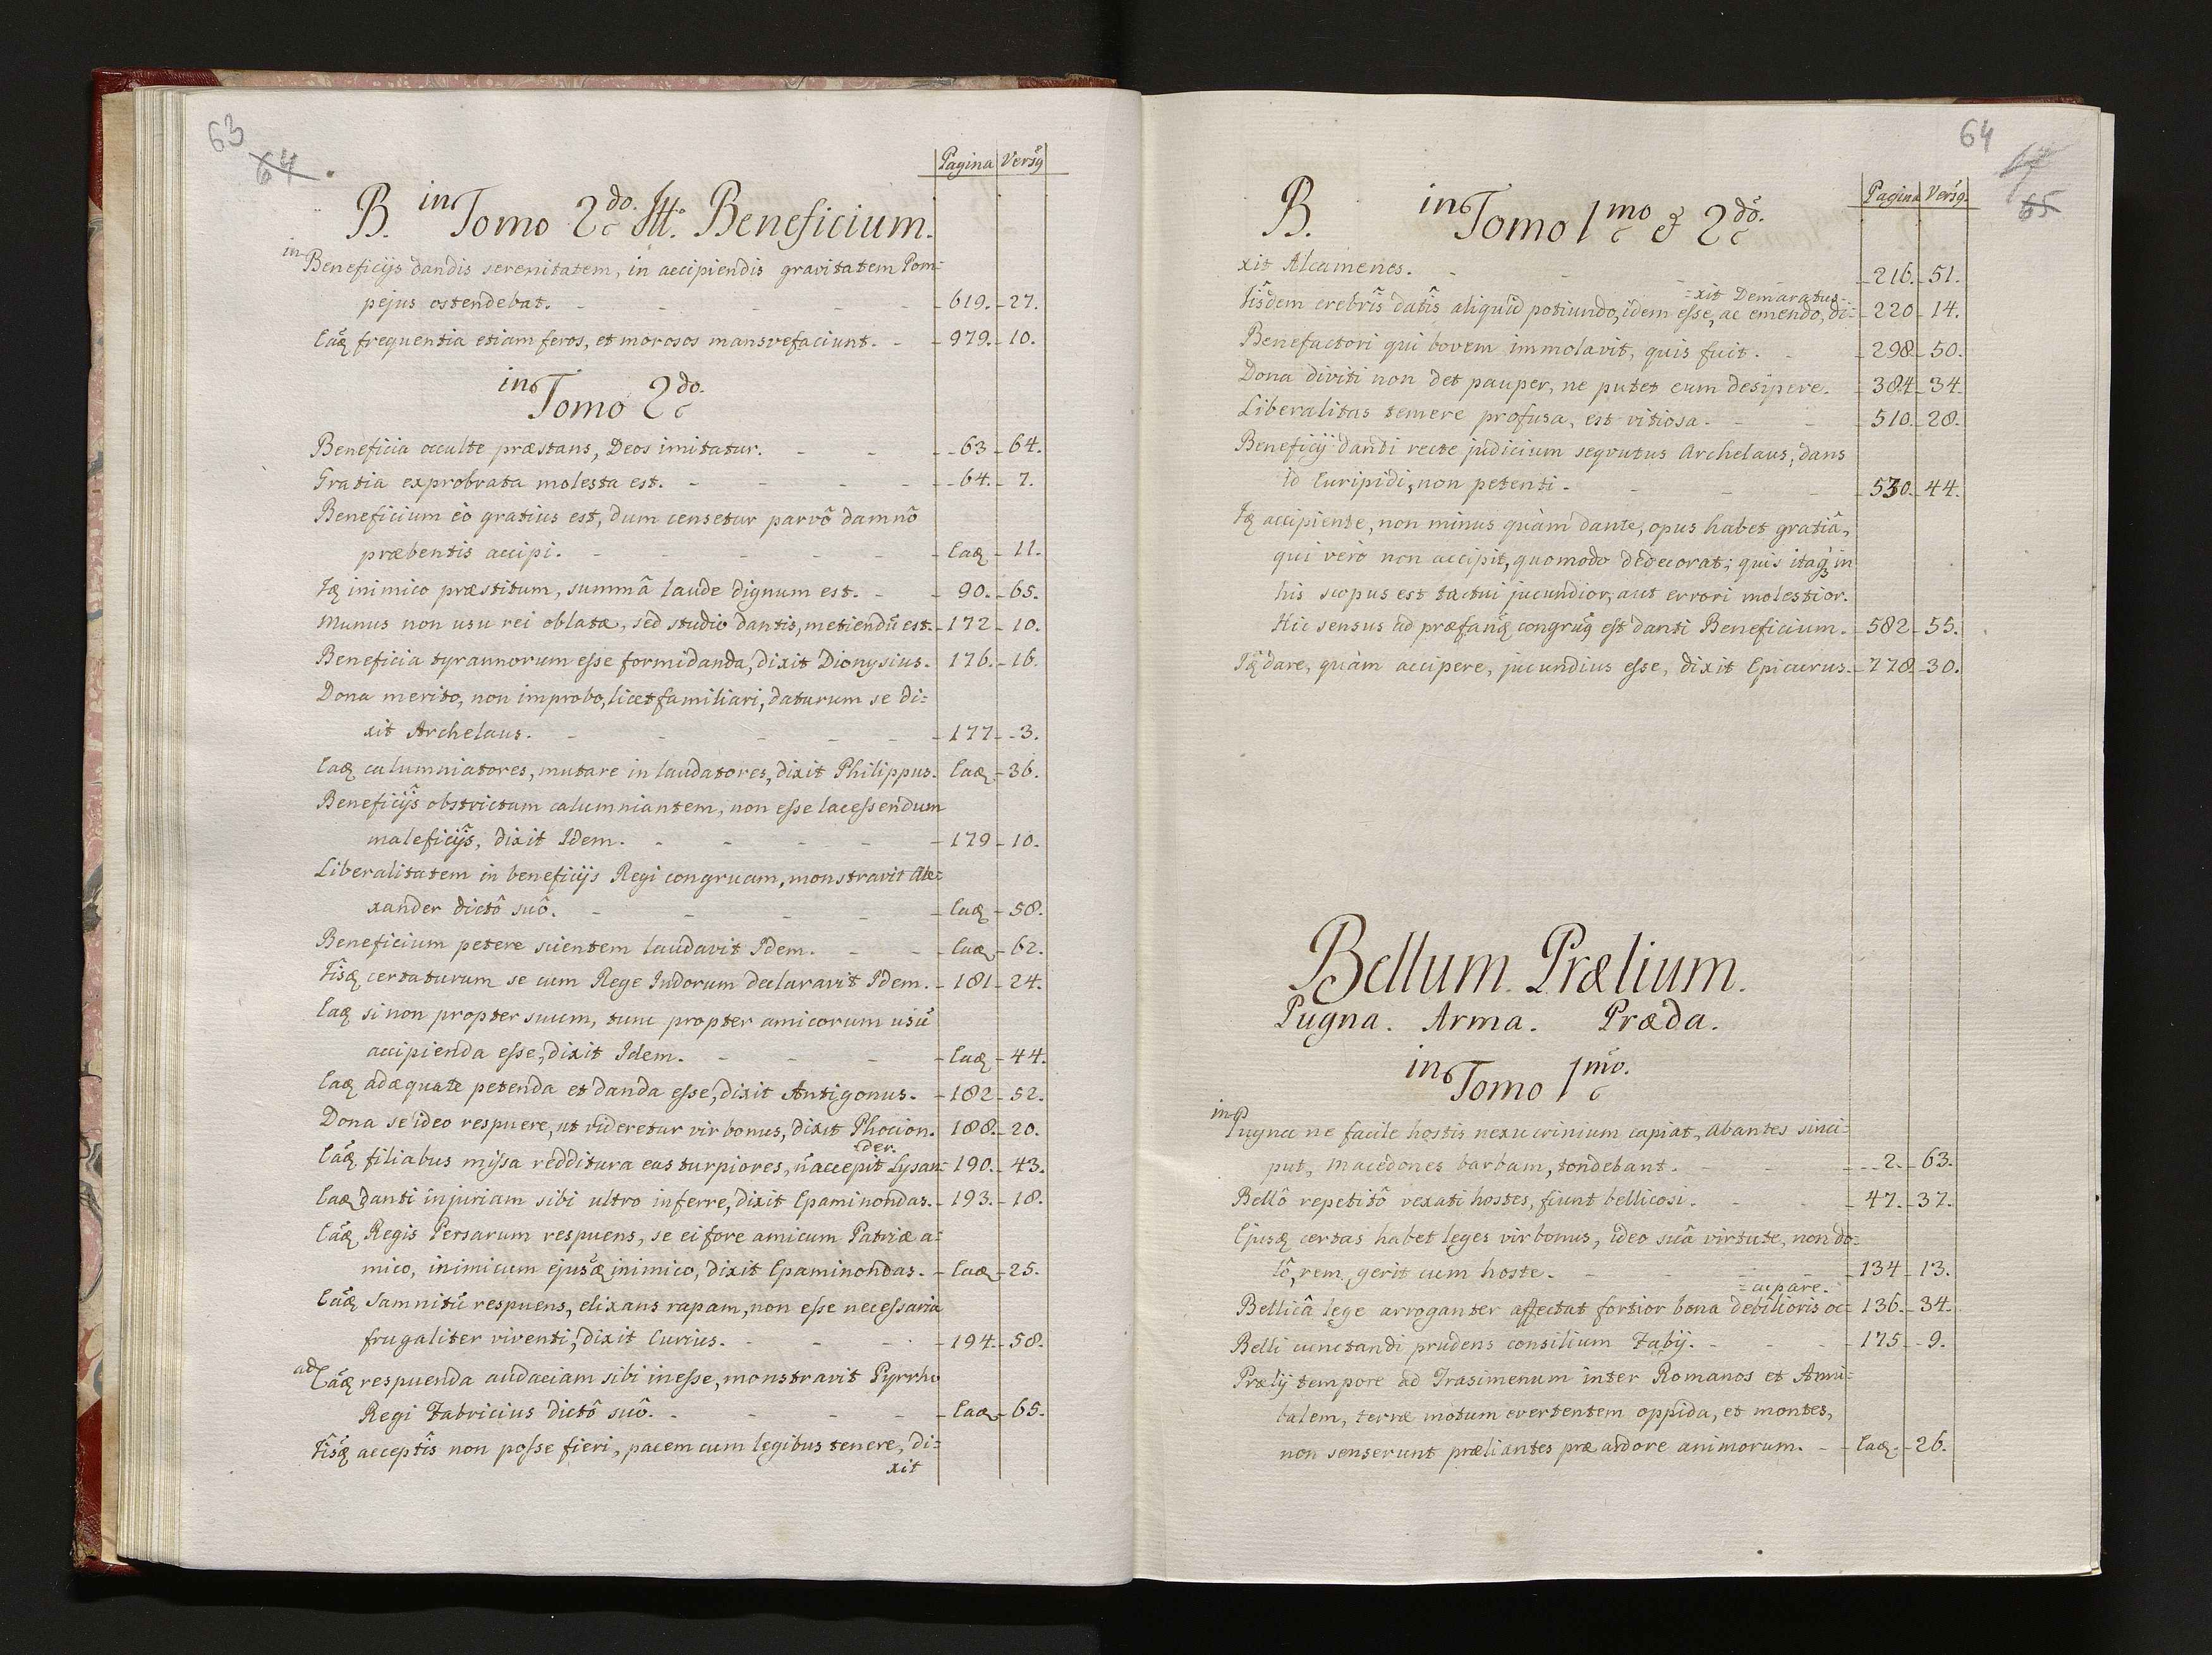 63
64.
Pagina Versq
B. in Tomo 2do. Itt. Beneficium.
in Beneficijs dandis serenitatem, in accipiendis gravitatem Pom=
pejus ostendebat. - 619. - 27.
Eaq frequentia etiam feros, et morosos mansvefaciunt. - 979. - 10.
in Tomo 2do.
Beneficia occulte præstans, Deos imitatur. - 63 - 64.
Gratia exprobrata molesta est. - 64. - 7.
Beneficium eò gratius est, dum censetur parvô damnô
præbentis accipi. - Eaq - 11.
Iq inimico præstitum, summâ laude dignum est. - 90. - 65.
Munus non usu rei oblatæ, sed studio dantis, metiendũ est. - 172 - 10.
Beneficia tyrannorum esse formidanda, dixit Dionysius. 176. - 16.
Dona merito, non improbo, licet familiari, daturum se di=
xit Archelaus. - 177 - 3.
Eaq calumniatores, mutare in laudatores, dixit Philippus. Eaq - 36.
Beneficijs obstrictum calumniantem, non esse lacessendum
maleficijs, dixit Idem. - 179 - 10.
Liberalitatem in beneficijs Regi congruam, monstravit Ale=
xander dictô suô. - Eaq - 58.
Beneficium petere scientem laudavit Idem. - Eaq - 62.
Iisq certaturum se cum Rege Indorum declaravit Idem. - 181 - 24.
Eaq si non propter suum, tunc propter amicorum usũ
accipienda esse, dixit Idem. - Eaq - 44.
Eaq adæquate petenda et danda esse, dixit Antigonus. - 182 - 52.
Dona se ideo respuere, ut videretur vir bonus, dixit Phocion. 188. - 20.
der.
Eaq filiabus missa redditura eas turpiores, ñ accepit Lysan= 190. - 43.
Eaq danti injuriam sibi ultro inferre, dixit Epaminondas. - 193. - 18.
Eaq Regis Persarum respuens, se ei fore amicum Patriæ a=
mico, inimicum ejusq inimico, dixit Epaminondas. - Eaq - 25.
Eaq Samnitũ respuens, elixans rapam, non esse necessaria
frugaliter viventi, dixit Curius. - 194. - 58.
ad Eaq respuenda audaciam sibi inesse, monstravit Pyrrho
Regi Fabricius dictô suô. - Eaq - 65.
Iisq acceptis non posse fieri, pacem cum legibus tenere, di=
xit
64
65
Pagina Versq.
B. in Tomo 1mo & 2do.
xit Alcamenes. - 216. - 51.
=xit Demaratus.
Iisdem crebris datis aliquid potiundo, idem esse, ac emendo, di= 220 - 14.
Benefactori qui bovem immolavit, quis fuit. - 298 - 50.
Dona diviti non det pauper, ne putet eum desipere. - 384 - 34.
Liberalitas temere profusa, est vitiosa. - 510 - 28.
Beneficij dandi recte judicium seqvutus Archelaus, dans
id Euripidi, non petenti. - 530. - 44.
Iq accipiente, non minus quàm dante, opus habet gratiâ,
qui verò non accipit, quomodo dedecorat; quis itaq in
his scopus est tactui jucundior, aut errori molestior.
Hic sensus ad præfanq congruq est danti Beneficium. - 582 - 55.
Iq dare, quàm accipere, jucundius esse, dixit Epicurus. - 778 - 30.
Bellum. Prælium.
Pugna. Arma. Præda.
in Tomo 1mo.
in Pugna ne facile hostis nexu crinium capiat, Abantes sinci=
put, Macedones barbam, tondebant. - 2. - 63.
Bellô repetitô vexati hostes, fiunt bellicosi. - 47. - 37.
Ejusq certas habet leges vir bonus, ideo suâ virtute, non do=
lô, rem gerit cum hoste. - 134 - 13.
=cupare.
Bellicâ lege arroganter affectat fortior bona debilioris oc= 136. - 34.
Belli cunctandi prudens consilium Fabij. - 175 - 9.
Prælij tempore ad Trasimenum inter Romanos et Anni=
balem, terræ motum evertentem oppida, et montes,
non senserunt præliantes præ ardore animorum. - Eaq. - 26.